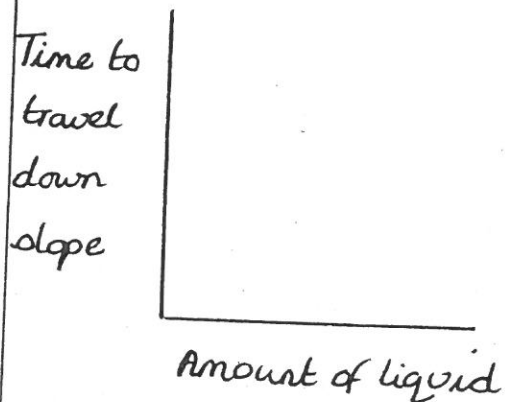 Time to
travel
down
slope
Amount of liquid